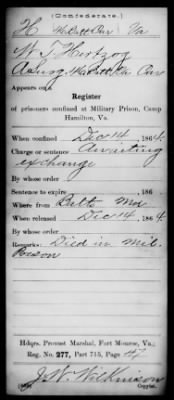 (Confederate.)
H McNeill's Cav Va
W. T. Hertzog
A Surg.
Appears on a
Register
of prisoners confined at Military Prison, Camp
Hamilton, Va.
When confined Dec 14, 1864.
Charge or sentence Awaiting
exchange
By whose order
Sentence to expire , 186 .
Where from Balto Md
When released Dec 14, 1864
By whose order
Remarks: Died in Mil.
Prison
Hdqrs. Provost Marshal, Fort Monroe, Va.;
Reg. No. 277, Part 715, Page 47
J. W. Wilkinson
Copyist.